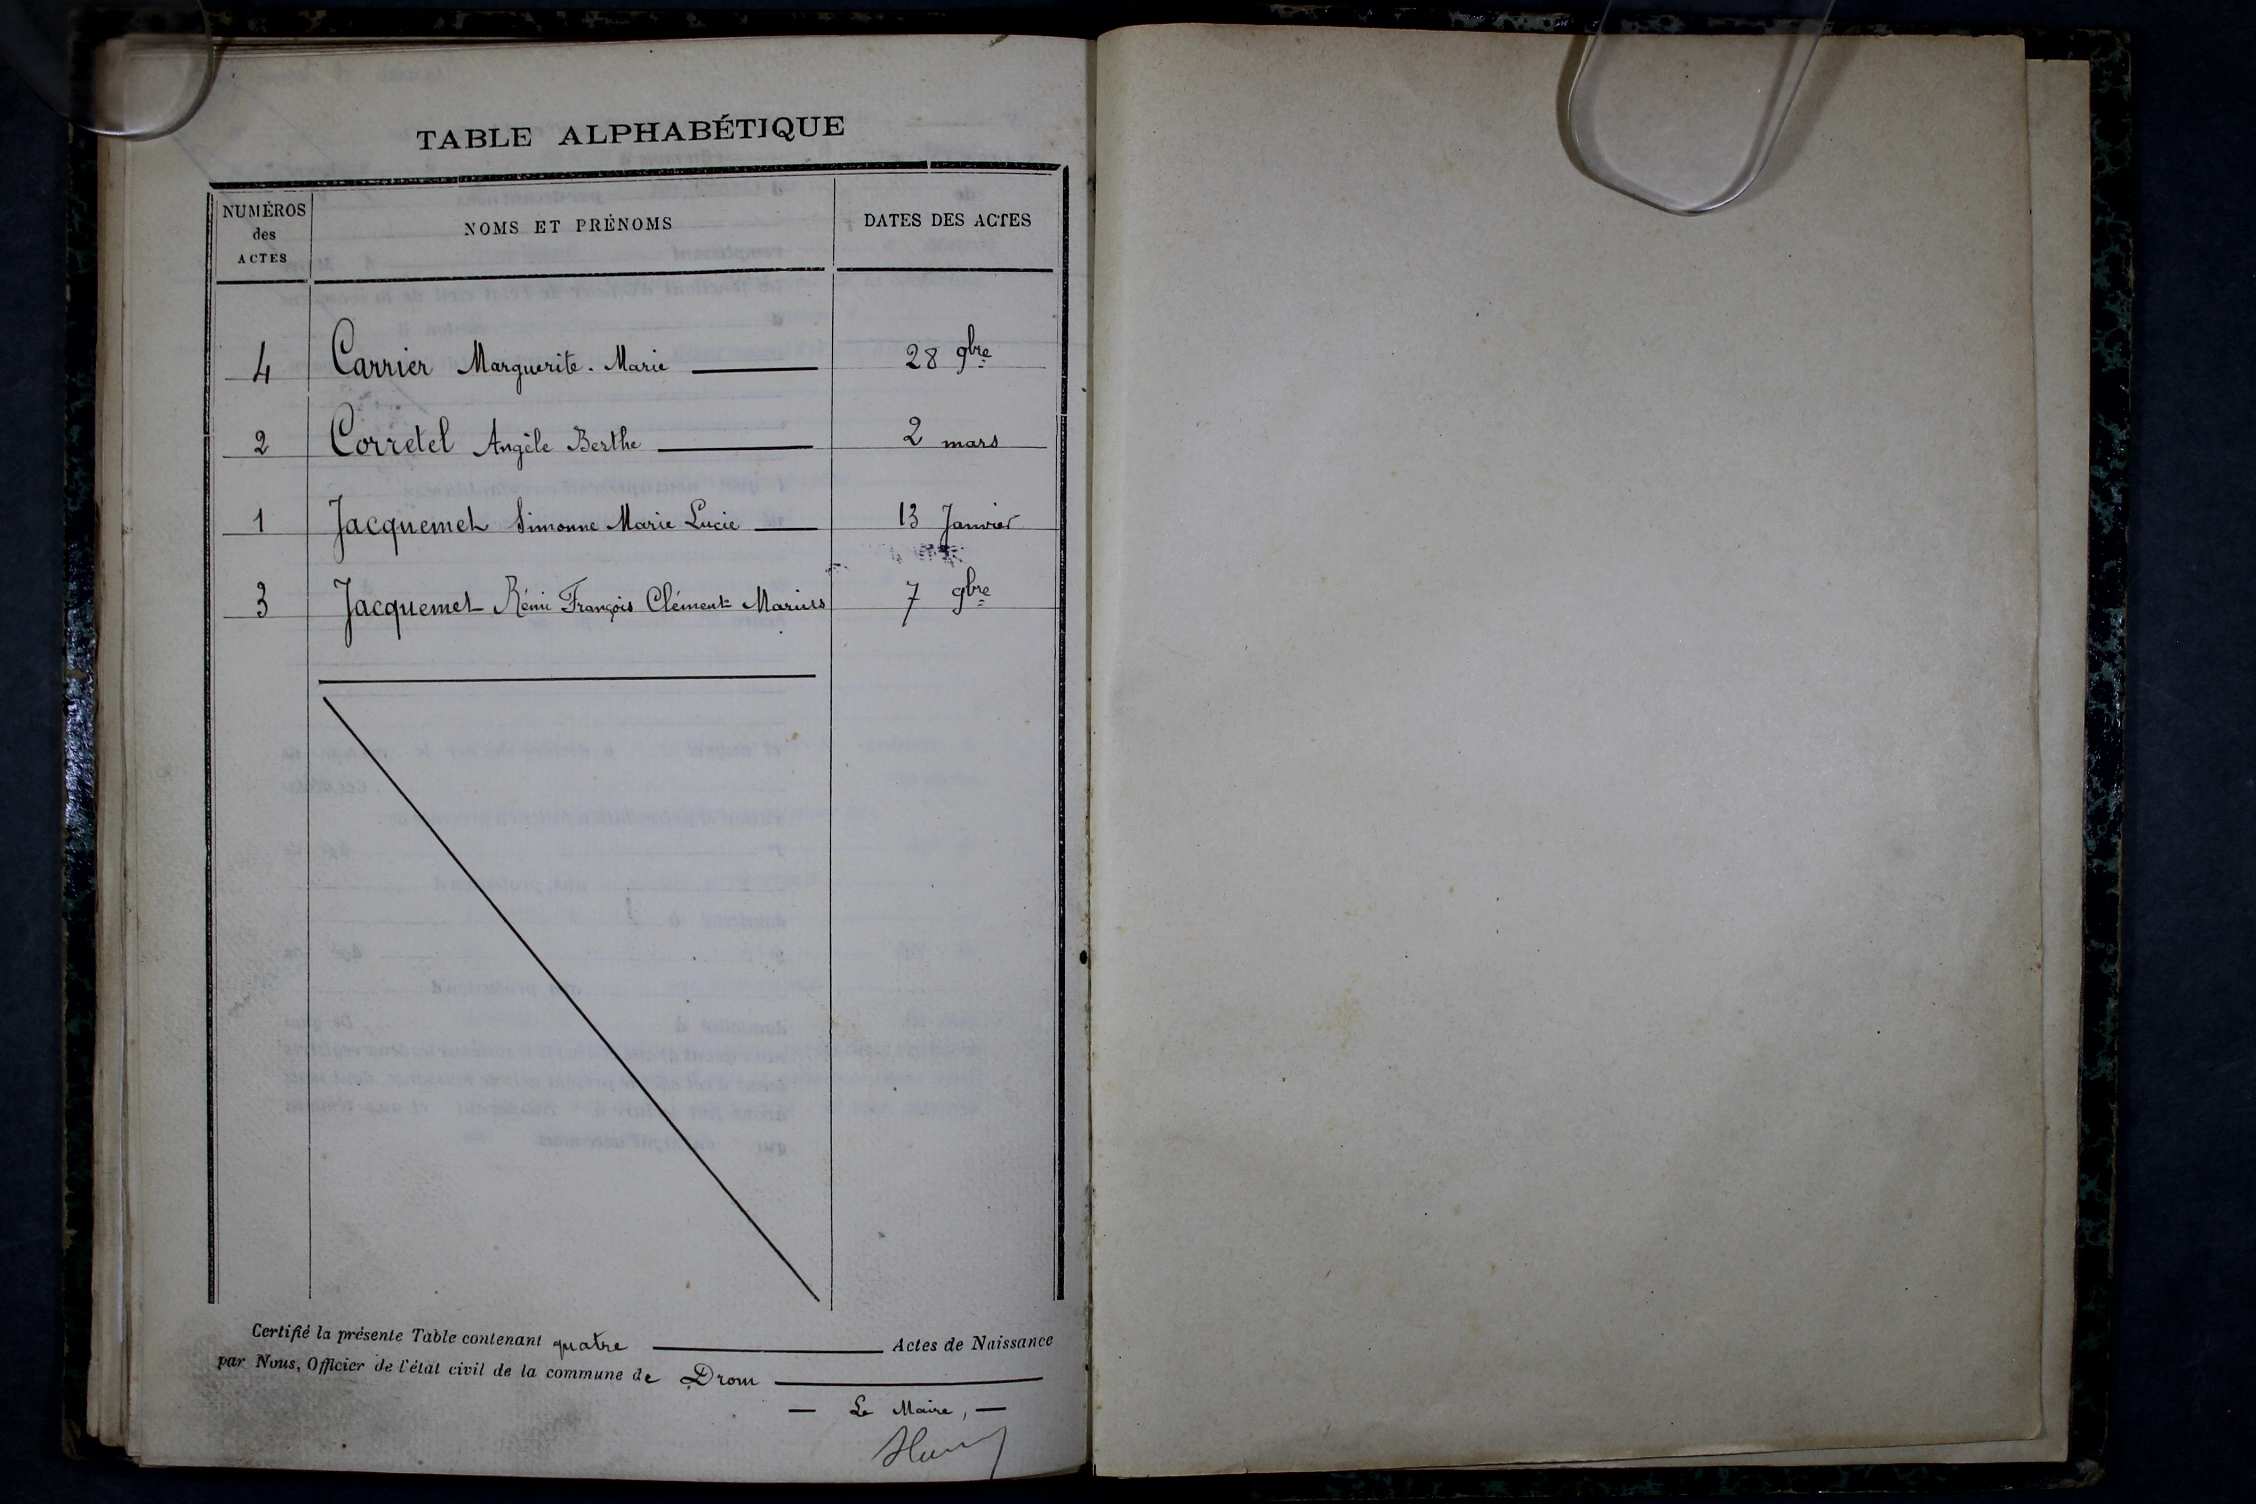 TABLE ALPHABÉTIQUE
NUMÉROS des ACTES NOMS ET PRÉNOMS DATES DES ACTES
4 Carrier Marguerite. Marie 28 9bre
2 Corretel Angèle Berthe 2 mars
1 Jacquemet Simonne Marie Lucie 13 Janvier
3 Jacquemet Rémi François Clément Marius 7 9bre
Certifié la présente Table contenant quatre Actes de Naissance
par Nous, Officier de l'état civil de la commune de Drom
Le Maire,